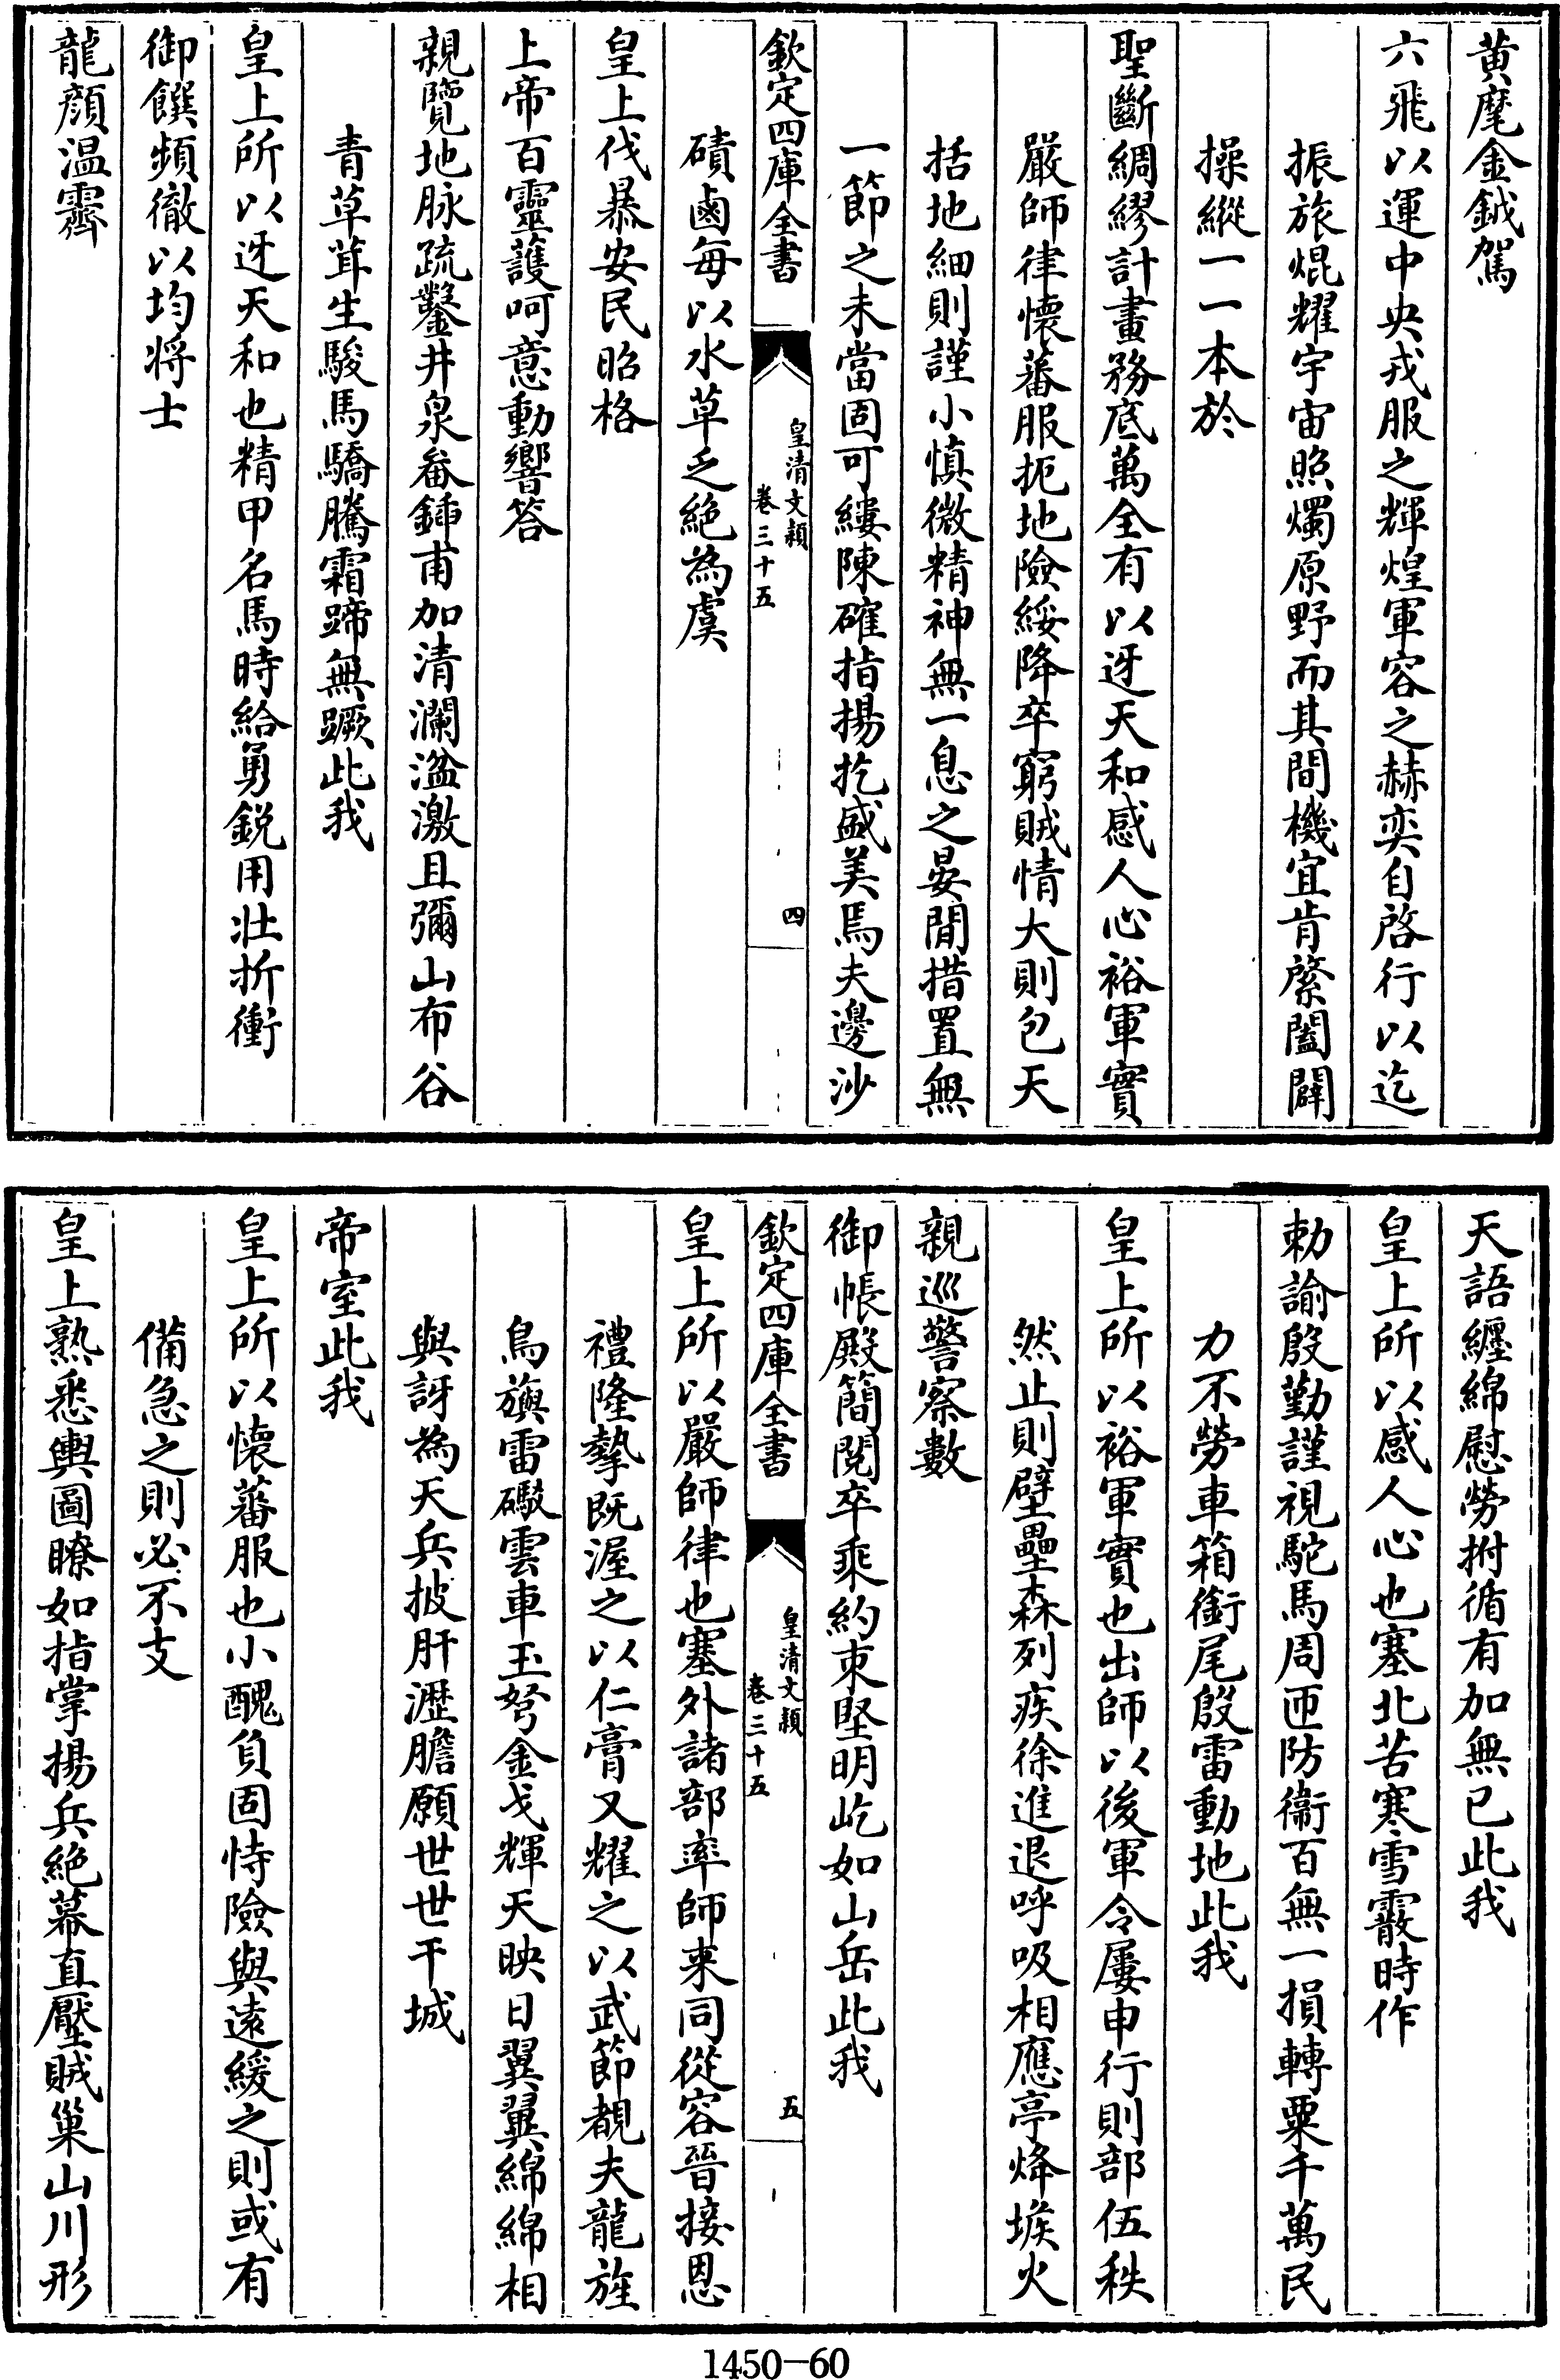 黄麾金鉞駕
六飛以運中央戎服之輝煌軍容之赫奕自啓行以迄
振旅焜耀宇宙照燭原野而其間機宜肯綮闔闢
操縱一一本於
聖斷綢繆計畫務底萬全有以迓天和感人心裕軍實
嚴師律懷蕃服扼地險綏降卒窮賊情大則包天
括地細則謹小慎微精神無一息之晏閒措置無
一節之未當固可縷陳確指揚扢盛美焉夫邊沙
欽定四庫全書
皇清文穎
卷三十五
四
磧鹵每以水草乏絶為虞
皇上伐暴安民昭格
上帝百靈護呵意動響答
親覽地脉疏鑿井泉畚鍤甫加清瀾溢激且彌山布谷
青草茸生駿馬驕騰霜蹄無蹶此我
皇上所以迓天和也精甲名馬時給勇鋭用壯折衝
御饌頻徹以均将士
龍顔温霽
天語纏綿慰勞拊循有加無已此我
皇上所以感人心也塞北苦寒雪霰時作
勅諭殷勤謹視駝馬周匝防衞百無一損轉粟千萬民
力不勞車箱銜尾殷雷動地此我
皇上所以裕軍實也出師以後軍令屢申行則部伍秩
然止則壁壘森列疾徐進退呼吸相應亭烽堠火
親巡警察數
御帳殿簡閲卒乘約束堅明屹如山岳此我
欽定四庫全書
皇清文穎
卷三十五
五
皇上所以嚴師律也塞外諸部率師来同從容晉接恩
禮隆摯既渥之以仁膏又耀之以武節覩夫龍旌
鳥旟雷礟雲車玉弩金戈輝天映日翼翼綿綿相
與訝為天兵披肝瀝膽願世世干城
帝室此我
皇上所以懷蕃服也小醜負固恃險與遠緩之則或有
備急之則必不支
皇上熟悉輿圖瞭如指掌揚兵絶幕直壓賊巢山川形
1450-60